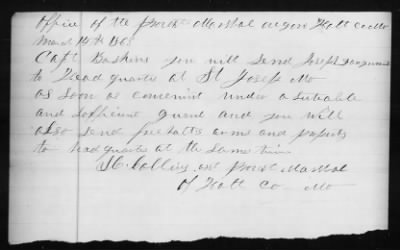 Office of the Provst Marshal Oregon Holt Co Mo
March 14th 1865
Capt Baskins you will send Joseph
to Head quarters at St Joseph Mo
as soon as convenint under a sutiable
and sofficient guard and you will
also send arms and papers
to head quarters at the same time
Collins ast Provst Marshal
of Holt Co Mo